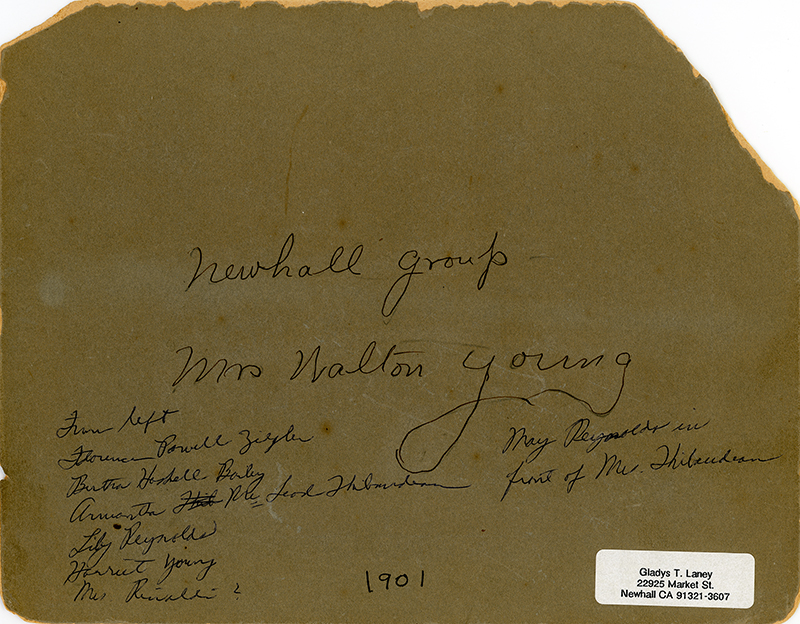 Newhall group -
Mrs Walton Young
From left
Florence Powell Ziegler
Bertha Haskell Bailey
Armantha Leod Thibaudeau
Lily Reynolds
Harriet Young
Mrs. Rinaldi ?
May Reynolds in
front of Mrs. Thibaudeau
1901
Gladys T. Laney
22925 Market St.
Newhall CA 91321-3607